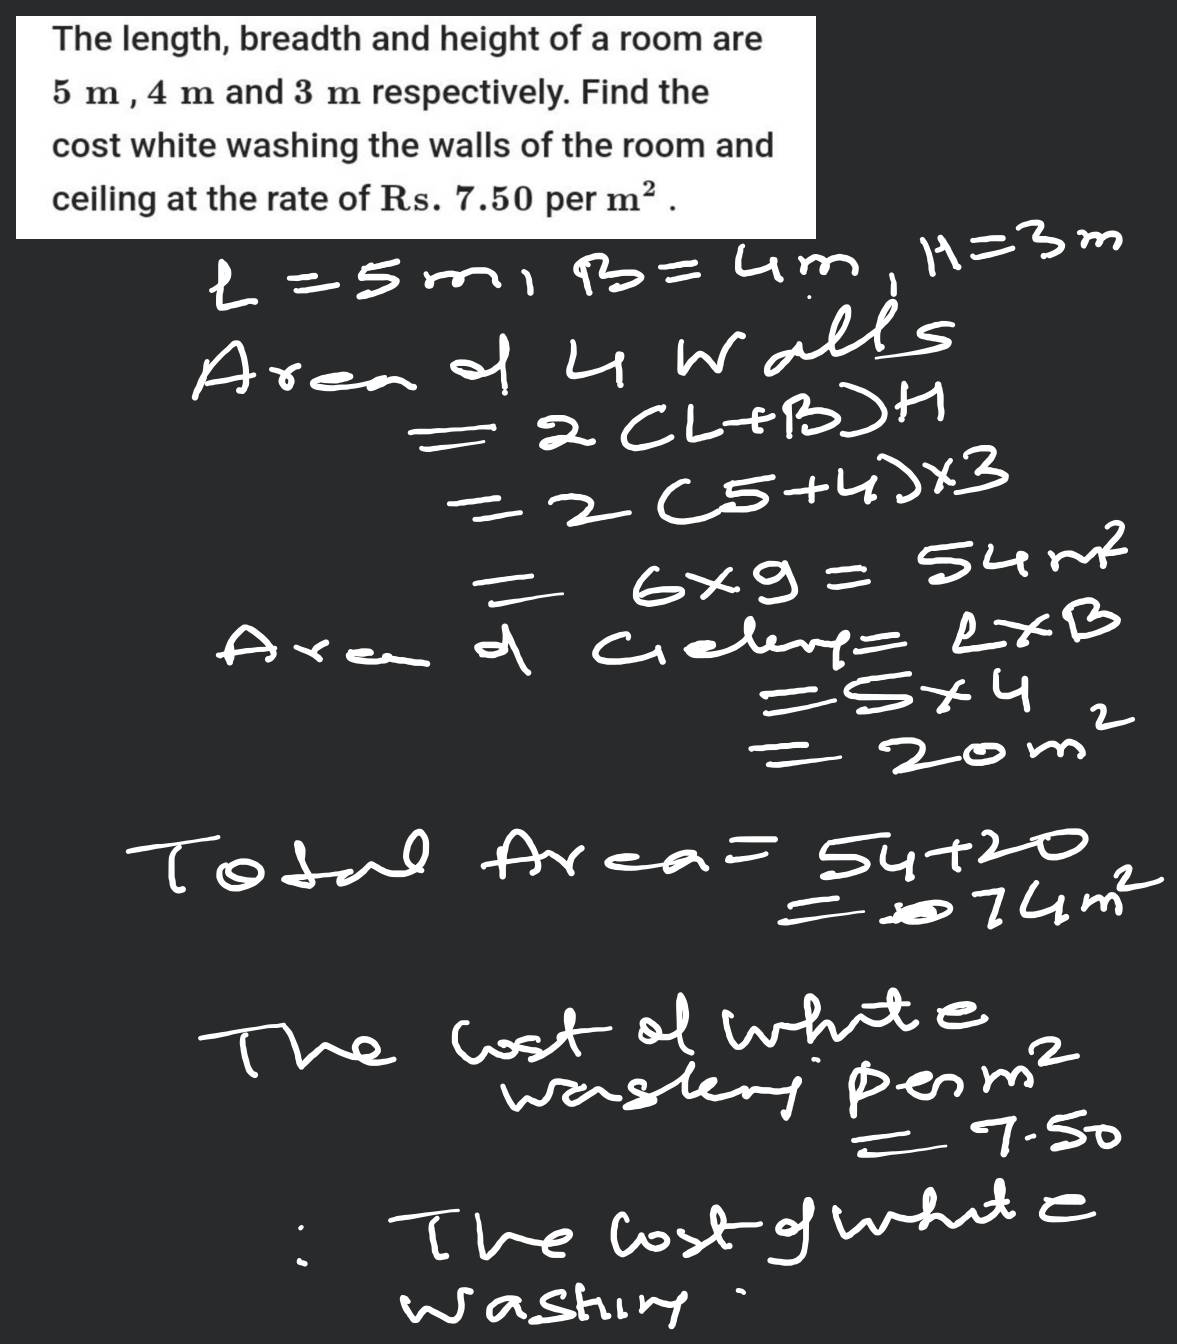 The length, breadth and height of a room are
5 m , 4 m and 3 m respectively. Find the
cost white washing the walls of the room and
ceiling at the rate of Rs. 7.50 per m² .
L = 5 m, B = 4 m, H = 3 m
Area of 4 Walls
= 2 (L+B) H
= 2 (5+4) × 3
= 6 × 9 = 54 m²
Area of = L × B
= 5 × 4
= 20 m²
Total Area = 54 + 20
= 74 m²
The cost of white
washing per m²
= 7.50
: The cost of white
washing .